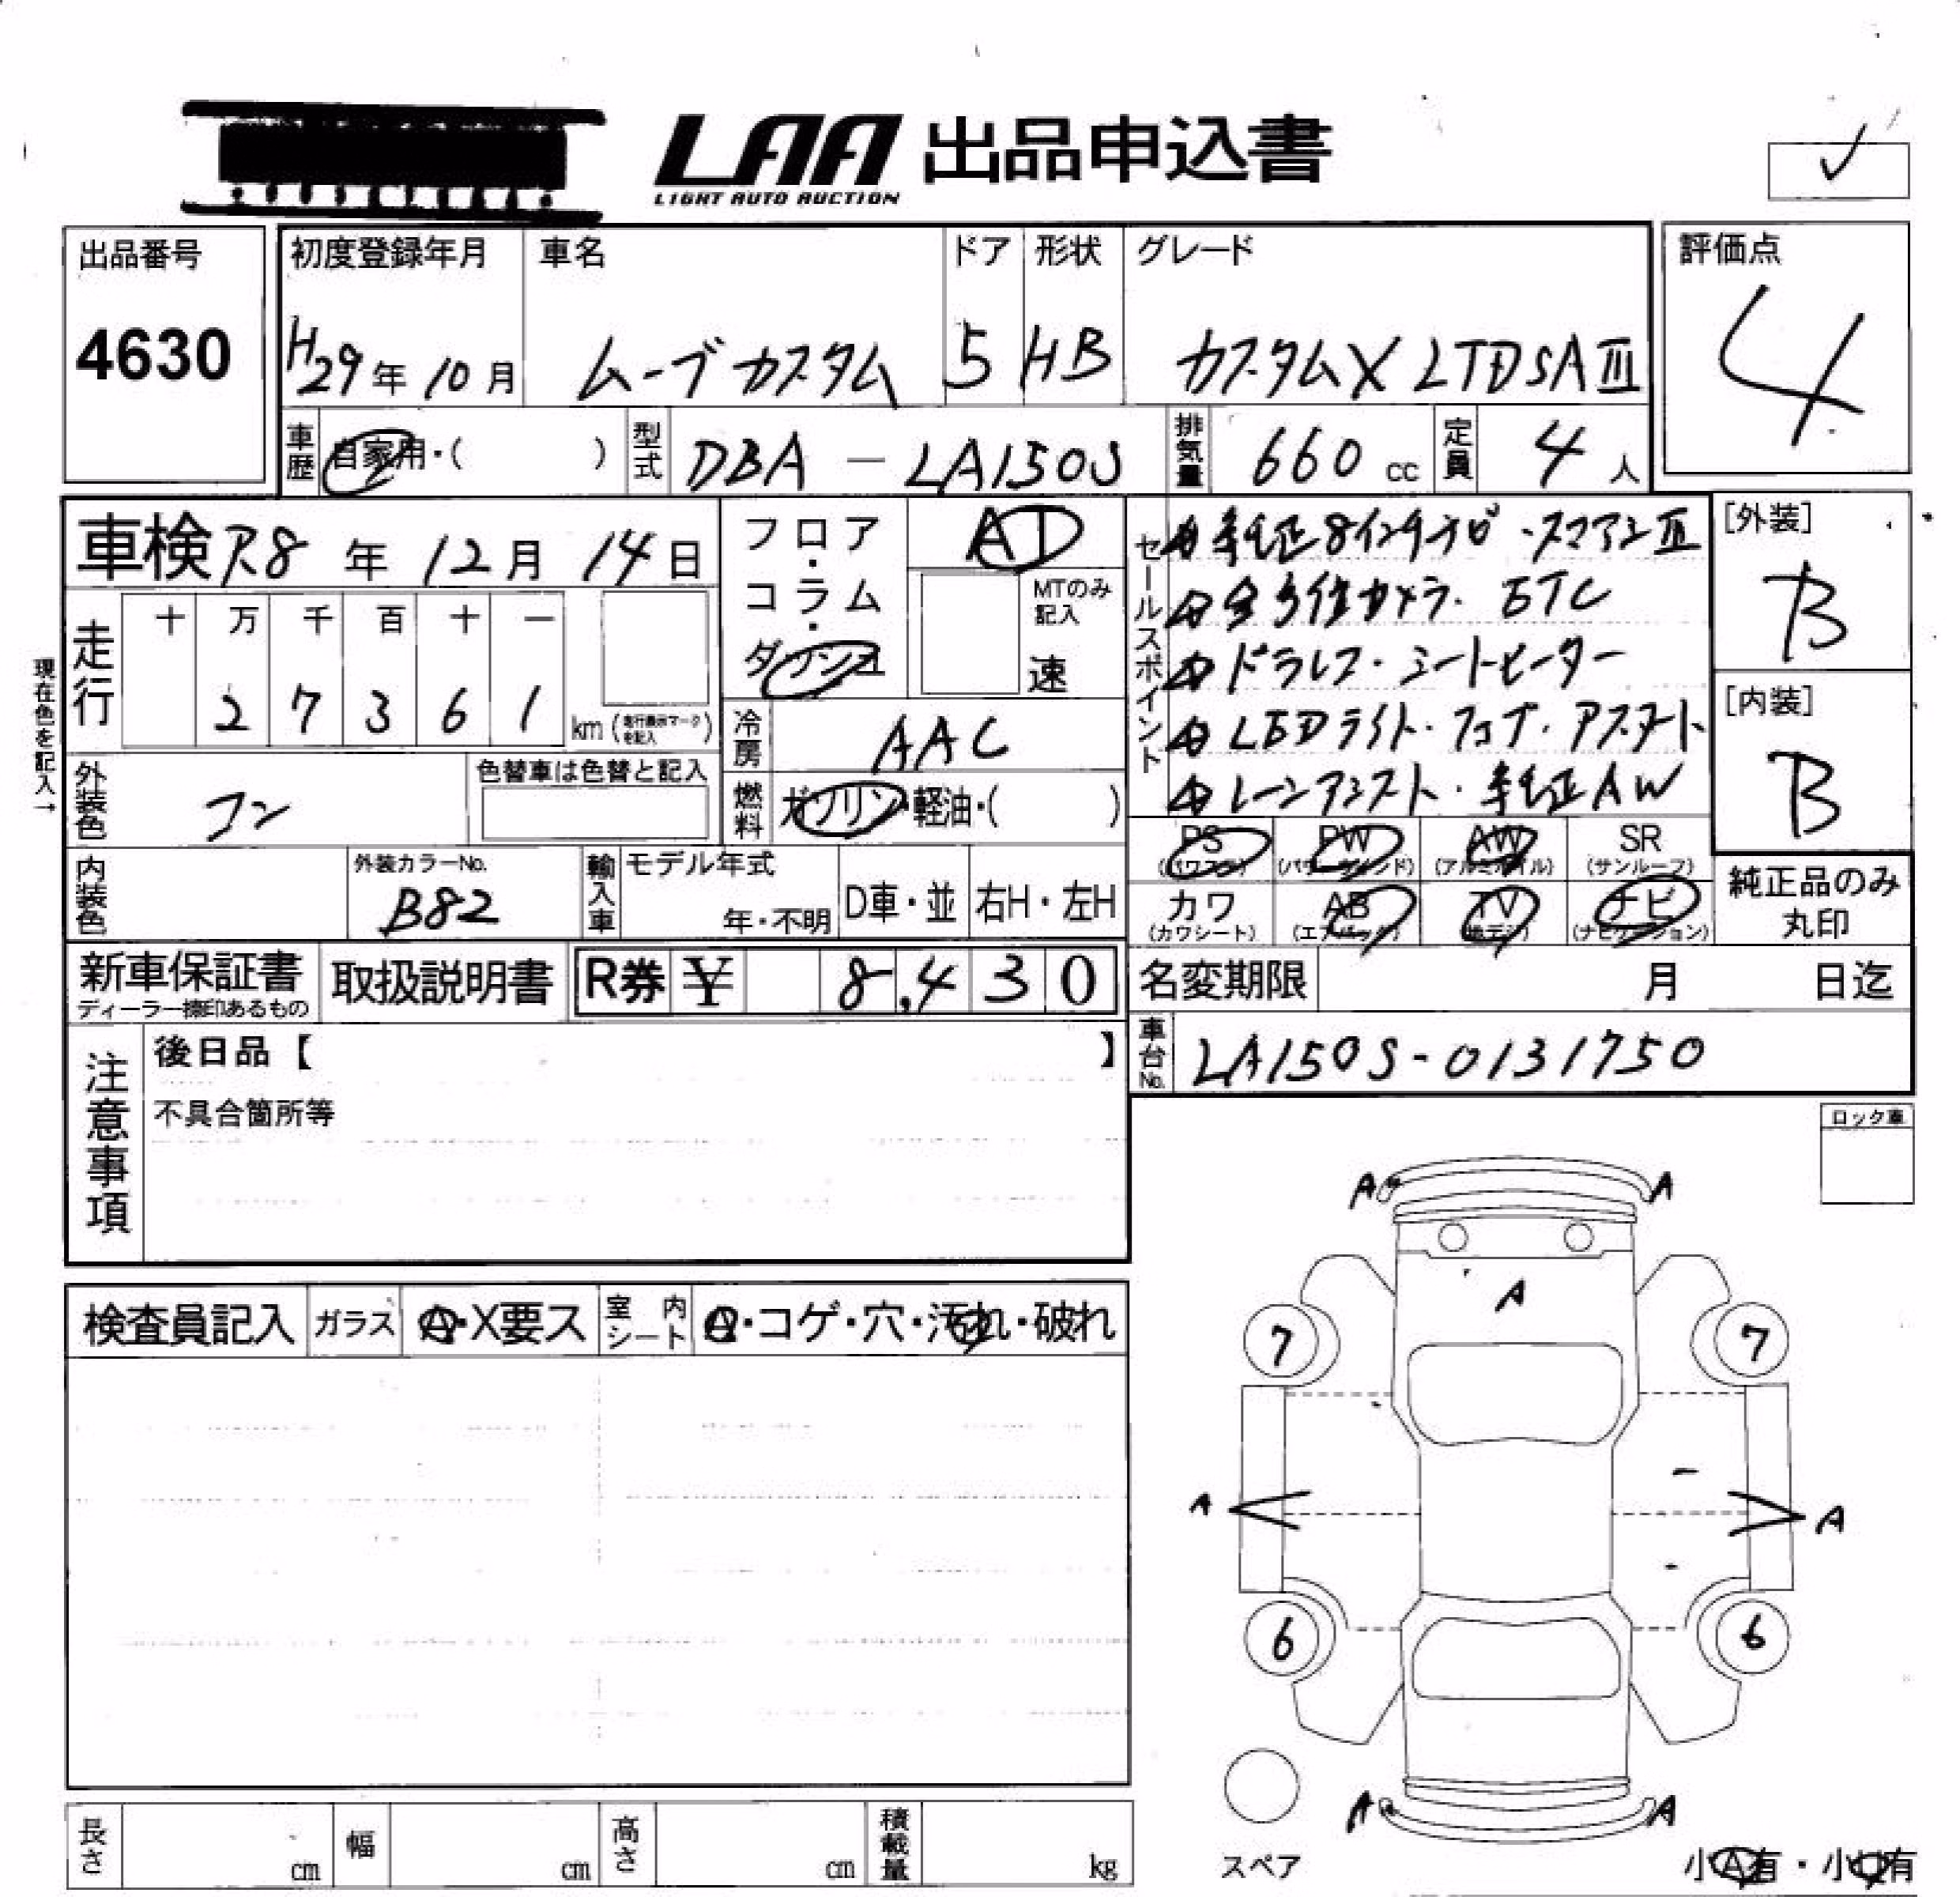 LAA 出品申込書
LIGHT AUTO AUCTION
✓
出品番号
4630
初度登録年月
H29年10月
車名
ムーブカスタム
ドア
5
形状
HB
グレード
カスタムX LTD SAⅢ
評価点
4
車歴
自家用・( )
型式
DBA-LA150S
排気量
660cc
定員
4人
車検 R8年12月14日
現在色を記入→
走行
十 万 千 百 十 一
2 7 3 6 1 km(走行表示マークを記入)
外装色
コン
色替車は色替と記入
内装色
外装カラーNo.
B82
フロア・コラム・ダッシュ
AT
MTのみ記入
速
冷房
AAC
燃料
ガソリン・軽油・( )
輸入車
モデル年式
年・不明
D車・並
右H・左H
セールスポイント
純正8インチナビ・スマアシⅢ
全方位カメラ・ETC
ドラレコ・シートヒーター
LEDライト・フォグ・アスタート
レーンアシスト・純正AW
[外装]
B
[内装]
B
PS (パワステ)
PW (パワーウインド)
AW (アルミホイル)
SR (サンルーフ)
カワ (カワシート)
AB (エアバック)
TV (地デジ)
ナビ (ナビゲーション)
純正品のみ丸印
新車保証書
ディーラー捺印あるもの
取扱説明書
R券 ¥ 8,430
名変期限 月 日迄
車台No.
LA150S-0131750
注意事項
後日品【 】
不具合箇所等
ロック車
検査員記入
ガラス
A・X要ス
室内シート
A・コゲ・穴・汚れ・破れ
A A
A
7 7
A A
6 6
A A
スペア
小A有・小U有
長さ cm
幅 cm
高さ cm
積載量 kg